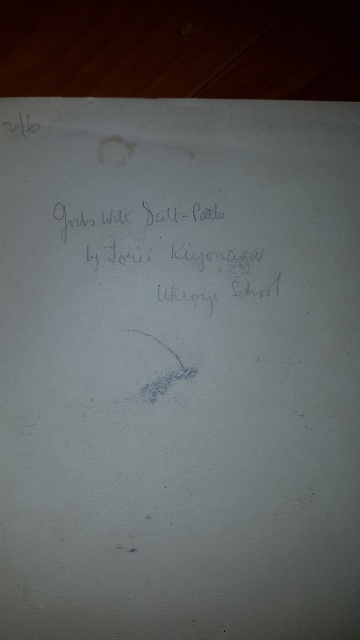 2/6
Girls with Salt-Pails
by Torii Kiyonaga
Ukiyoye School